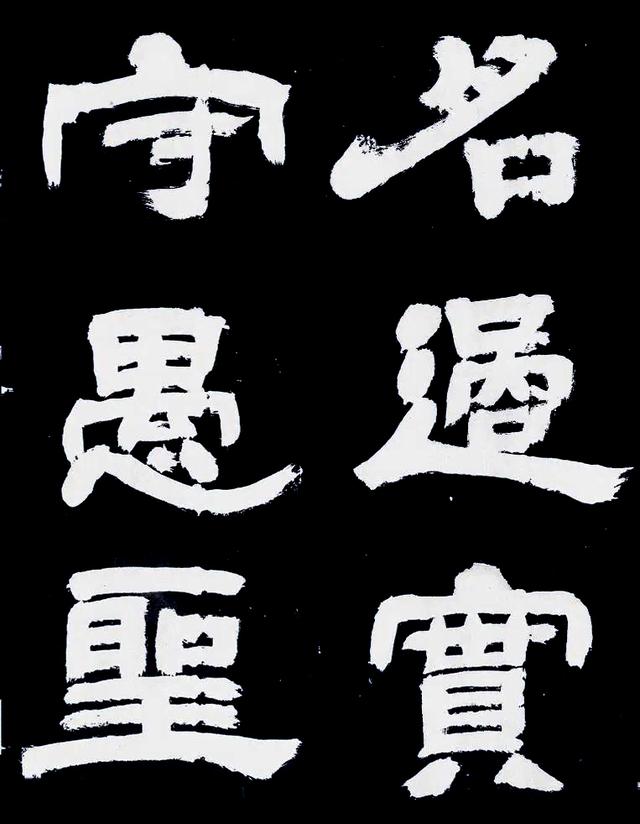 名過實
守愚聖